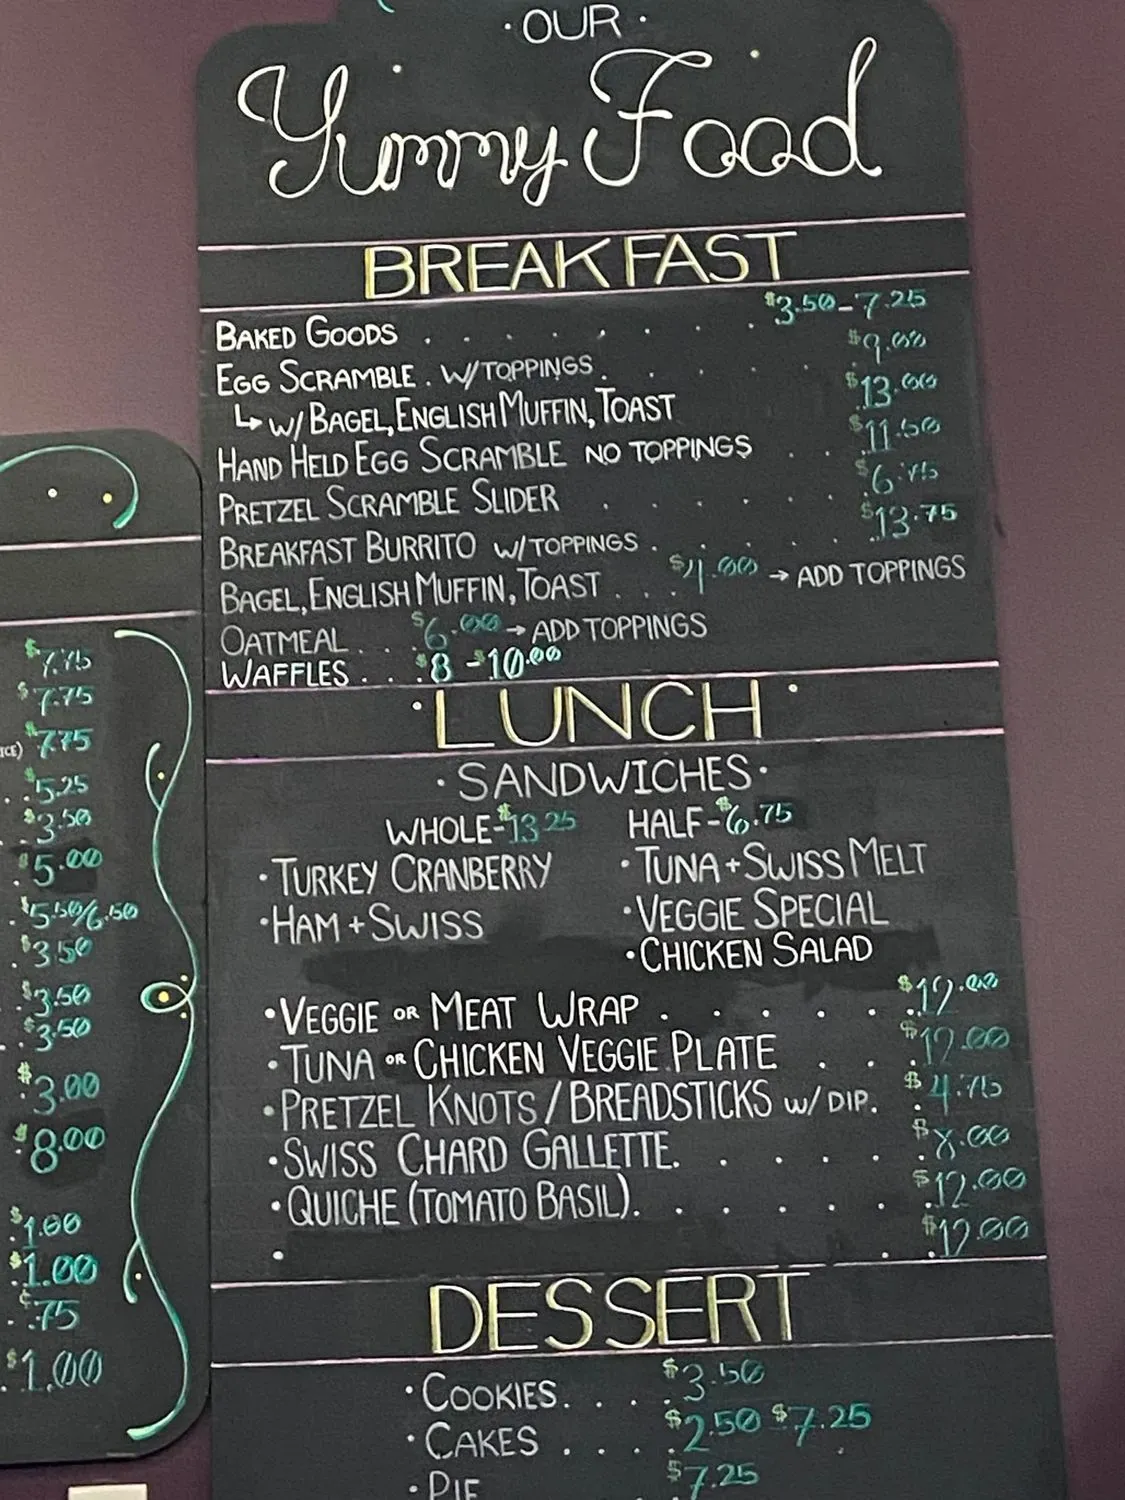 · OUR ·
Yummy Food
BREAKFAST
BAKED GOODS . . . . . . . $3.50-7.25
EGG SCRAMBLE . W/TOPPINGS . . . . . . $9.00
↳ W/ BAGEL, ENGLISH MUFFIN, TOAST $13.00
HAND HELD EGG SCRAMBLE NO TOPPINGS . . $11.50
PRETZEL SCRAMBLE SLIDER . . . . . . $6.75
BREAKFAST BURRITO W/TOPPINGS . . . . . $13.75
BAGEL, ENGLISH MUFFIN, TOAST . . . $4.00 → ADD TOPPINGS
OATMEAL . . . $6.00 → ADD TOPPINGS
WAFFLES . . . $8 - $10.00
· LUNCH ·
· SANDWICHES ·
WHOLE-$13.25 HALF-$6.75
· TURKEY CRANBERRY · TUNA + SWISS MELT
· HAM + SWISS · VEGGIE SPECIAL
· CHICKEN SALAD
· VEGGIE OR MEAT WRAP . . . . . . $12.00
· TUNA OR CHICKEN VEGGIE PLATE . . . $12.00
· PRETZEL KNOTS / BREADSTICKS W/ DIP. . $4.75
· SWISS CHARD GALLETTE. . . . . . $8.00
· QUICHE (TOMATO BASIL). . . . . . . $12.00
· . . $12.00
DESSERT
· COOKIES. . . . $3.50
· CAKES . . . . $2.50 $7.25
· PIE $7.25
$7.75
$7.75
ICE) $7.75
. . $5.25
. $3.50
. $5.00
. $5.50/6.50
. $3.50
. $3.50
. $3.50
. $3.00
. $8.00
$1.00
. $1.00
. .75
. $1.00